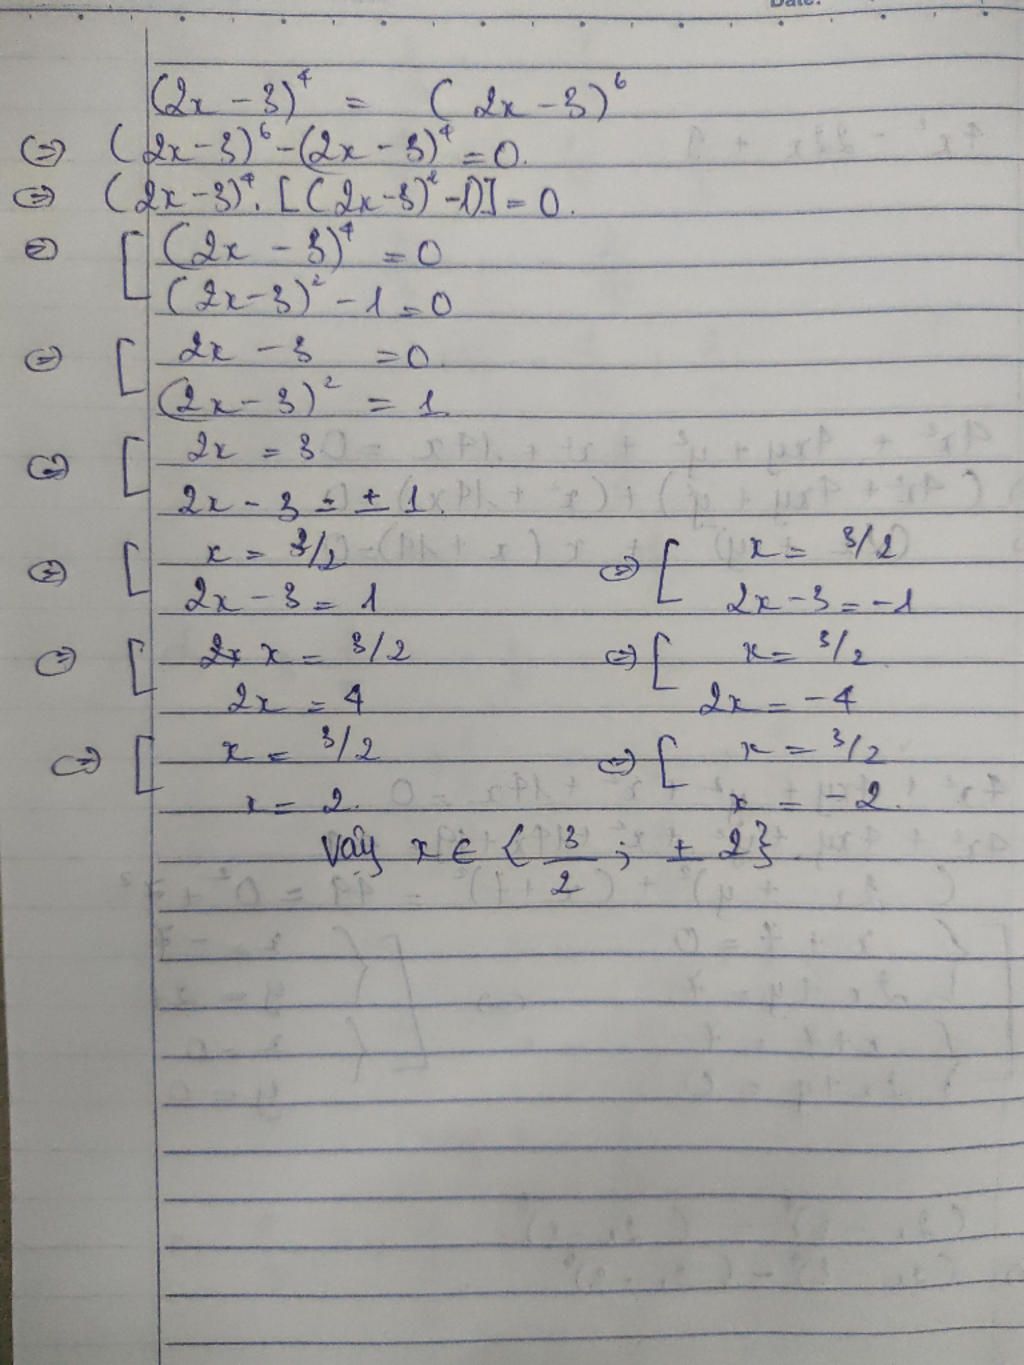 Date:
(2x - 3)⁴ = (2x - 3)⁶
⇔ (2x - 3)⁶ - (2x - 3)⁴ = 0.
⇔ (2x - 3)⁴. [(2x - 3)² - 1)] = 0.
⇔ [ (2x - 3)⁴ = 0
(2x - 3)² - 1 = 0
⇔ [ 2x - 3 = 0.
(2x - 3)² = 1.
⇔ [ 2x = 3
2x - 3 = ± 1.
⇔ [ x = 3/2 ⇔ [ x = 3/2
2x - 3 = 1 2x - 3 = -1
⇔ [ x = 3/2 ⇔ [ x = 3/2
2x = 4 2x = -4
⇔ [ x = 3/2 ⇔ [ x = 3/2
x = 2. x = -2.
Vậy x ∈ { 3/2 ; ± 2}.